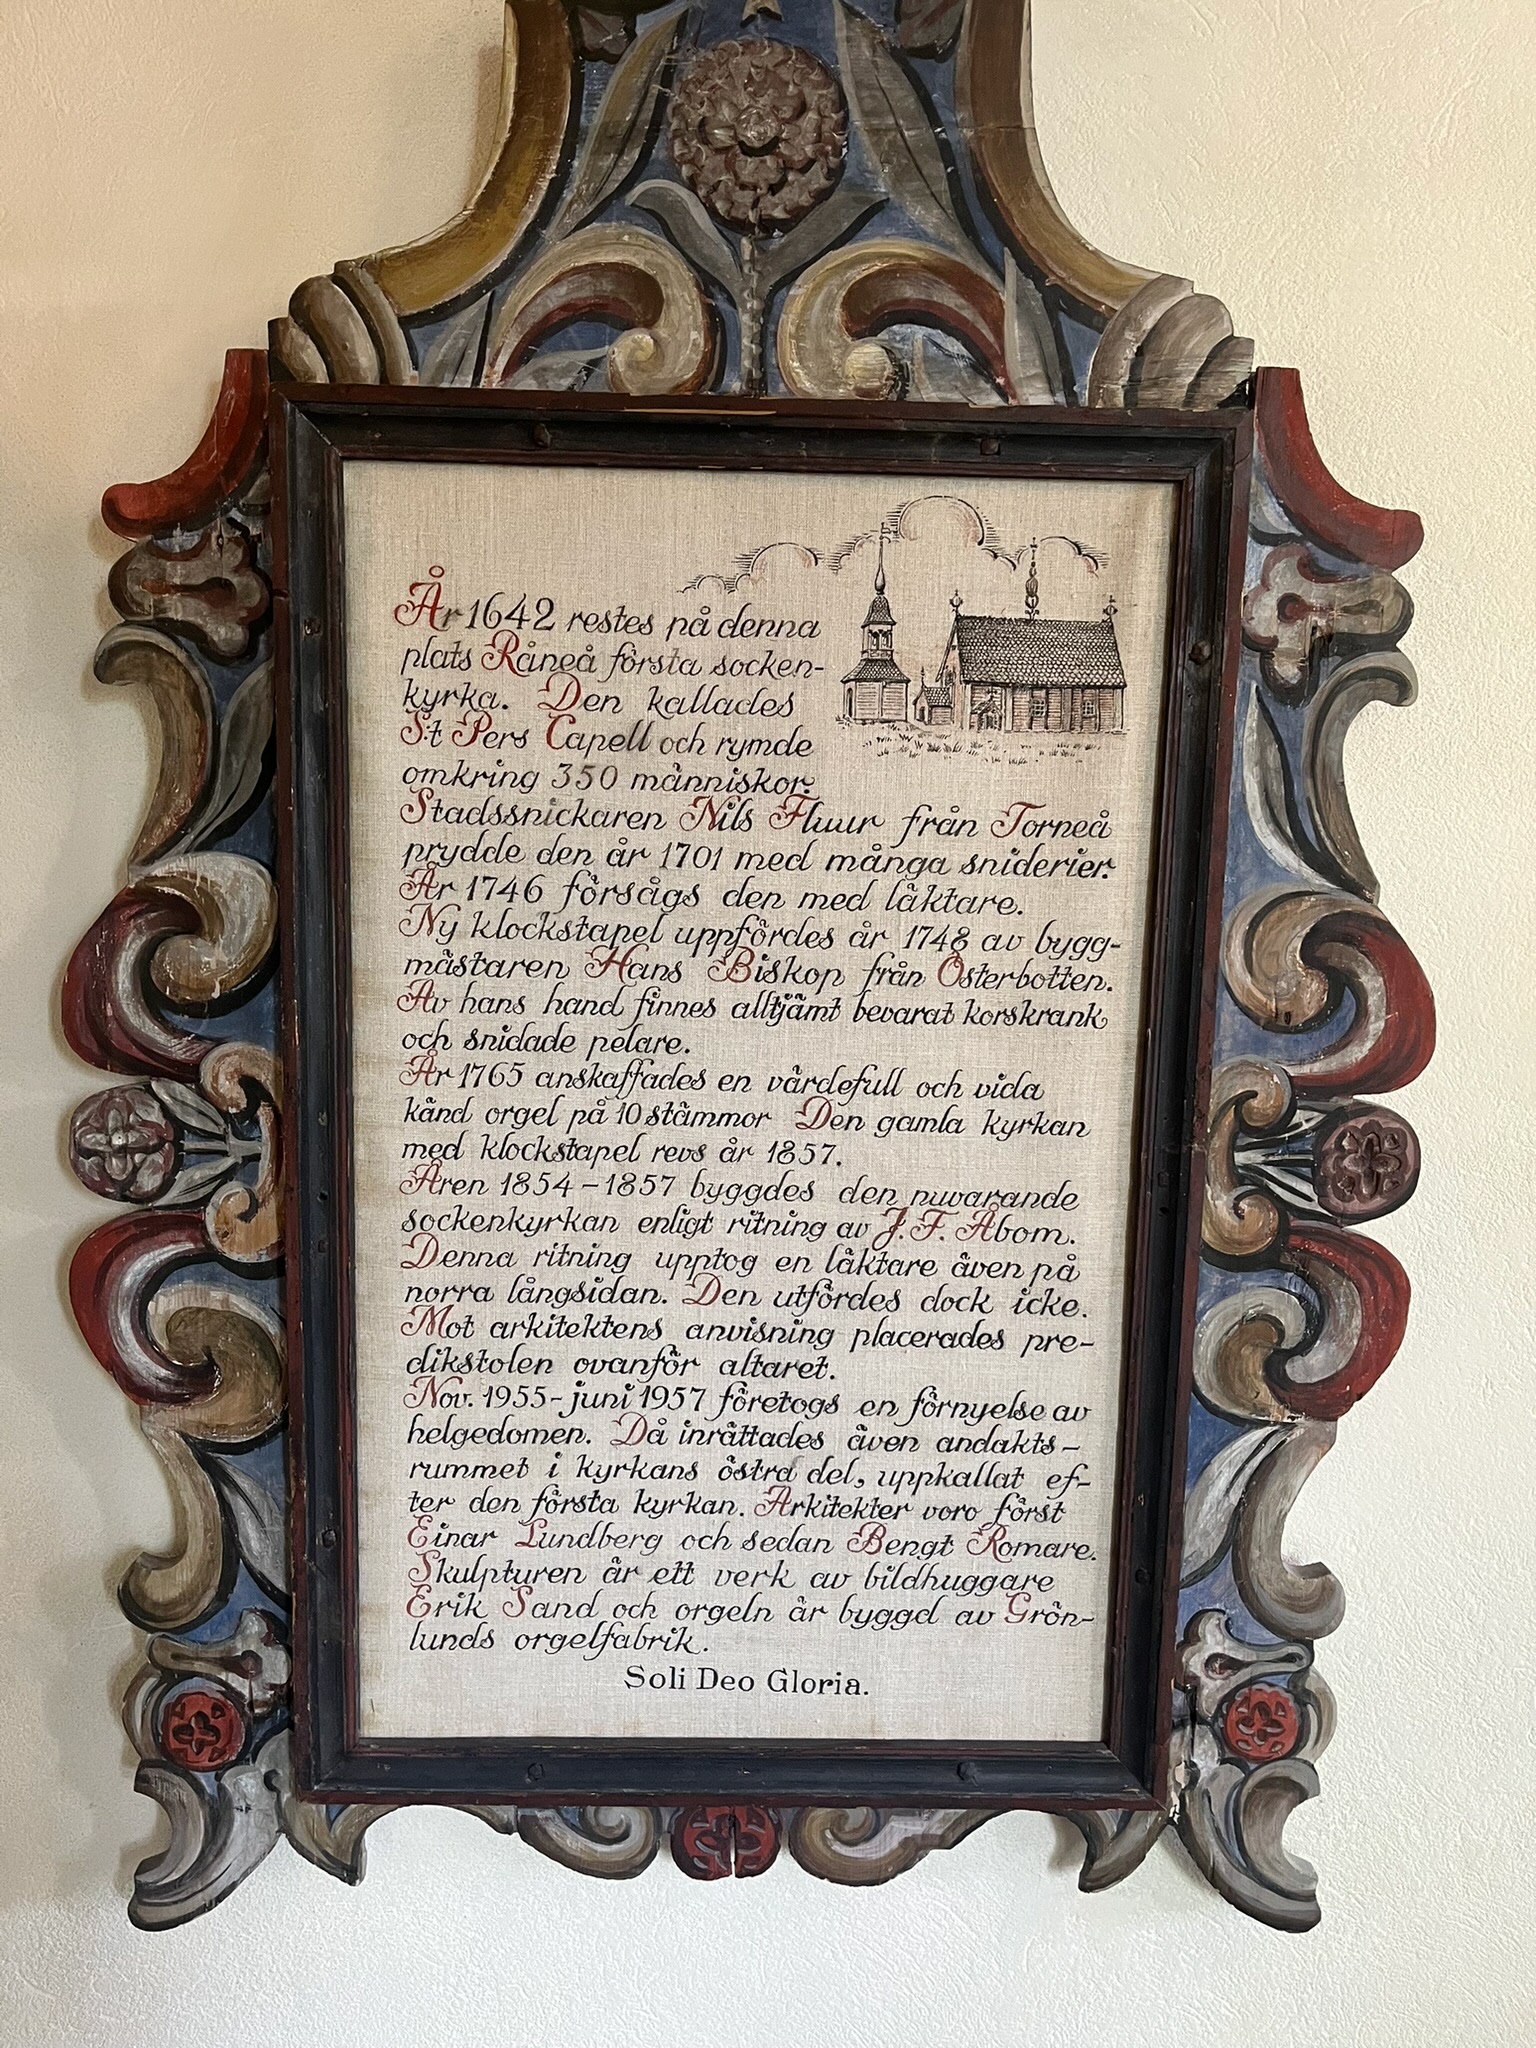 År 1642 restes på denna
plats Råneå första socken-
kyrka. Den kallades
S:t Pers Capell och rymde
omkring 350 människor.
Stadssnickaren Nils Fluur från Torneå
prydde den år 1701 med många sniderier.
År 1746 försågs den med läktare.
Ny klockstapel uppfördes år 1748 av bygg-
mästaren Hans Biskop från Österbotten.
Av hans hand finnes alltjämt bevarat korskrank
och snidade pelare.
År 1765 anskaffades en värdefull och vida
känd orgel på 10 stämmor Den gamla kyrkan
med klockstapel revs år 1857.
Åren 1854-1857 byggdes den nuvarande
sockenkyrkan enligt ritning av J. F. Åbom.
Denna ritning upptog en läktare även på
norra långsidan. Den utfördes dock icke.
Mot arkitektens anvisning placerades pre-
dikstolen ovanför altaret.
Nov. 1955-juni 1957 företogs en förnyelse av
helgedomen. Då inrättades även andakts-
rummet i kyrkans östra del, uppkallat ef-
ter den första kyrkan. Arkitekter voro först
Einar Lundberg och sedan Bengt Romare.
Skulpturen är ett verk av bildhuggare
Erik Sand och orgeln är byggd av Grön-
lunds orgelfabrik.
Soli Deo Gloria.